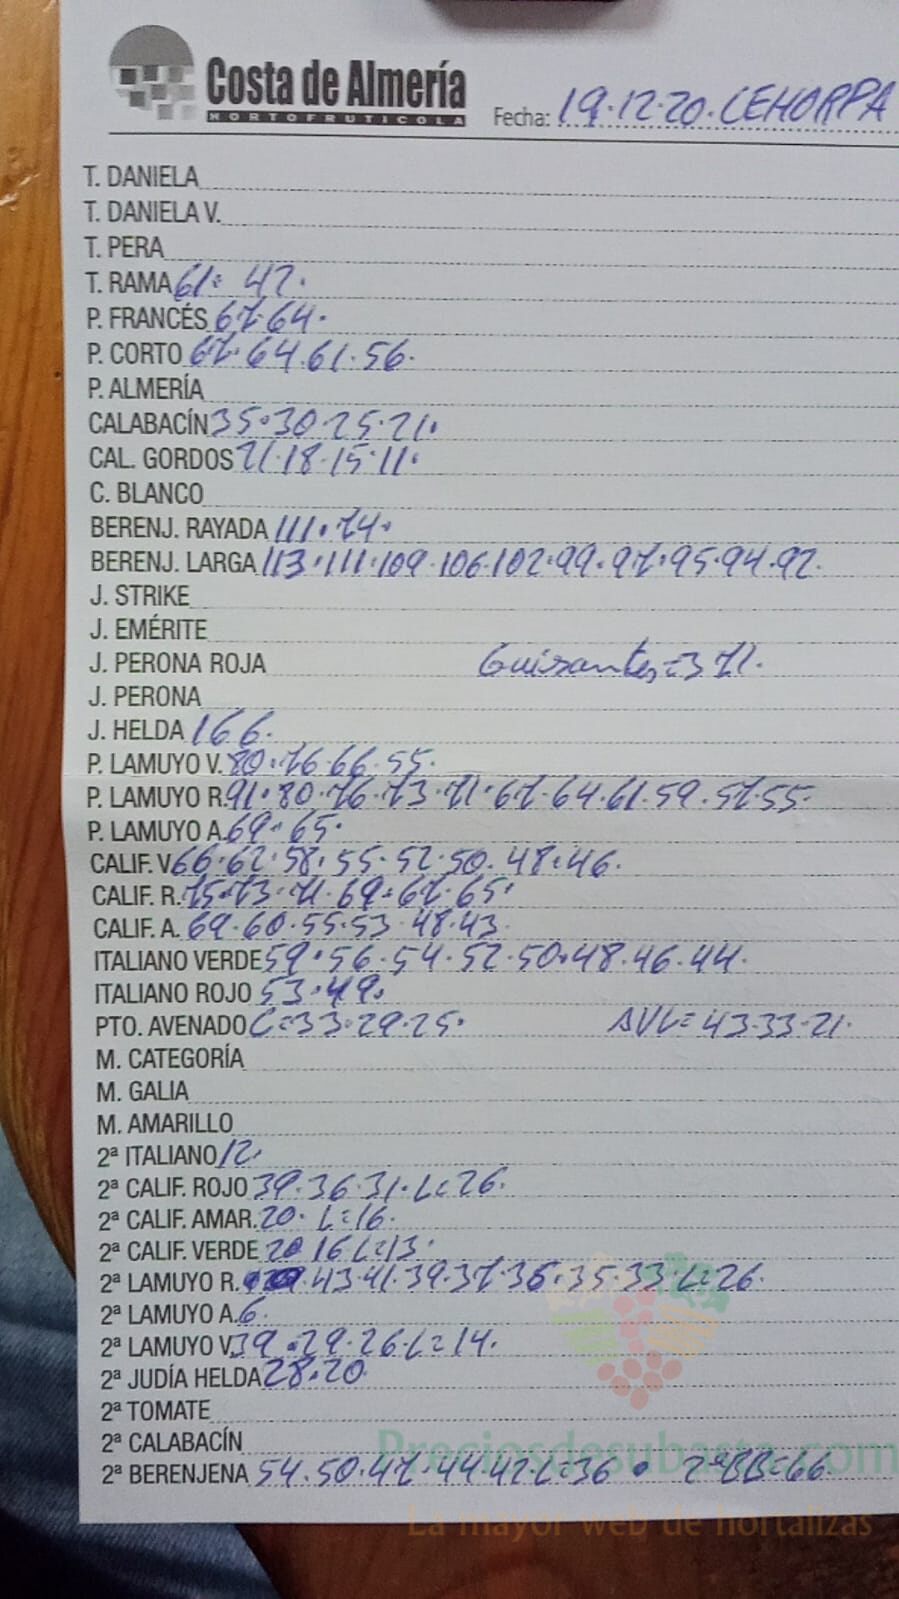 Costa de Almería
HORTOFRUTICOLA
Fecha: 19.12.20. CEHORPA
T. DANIELA
T. DANIELA V.
T. PERA
T. RAMA 61. 42.
P. FRANCÉS 67.64.
P. CORTO 67.64.61.56.
P. ALMERÍA
CALABACÍN 35.30.25.21.
CAL. GORDOS 21.18.15.11.
C. BLANCO
BERENJ. RAYADA 111.74.
BERENJ. LARGA 113.111.109.106.102.99.97.95.94.92.
J. STRIKE
J. EMÉRITE
J. PERONA ROJA Guisantes=371.
J. PERONA
J. HELDA 166.
P. LAMUYO V. 80.76.66.55.
P. LAMUYO R. 91.80.76.73.71.67.64.61.59.57.55.
P. LAMUYO A. 69.65.
CALIF. V. 66.62.58.55.52.50.48.46.
CALIF. R. 75.73.71.69.67.65.
CALIF. A. 69.60.55.53.48.43.
ITALIANO VERDE 59.56.54.52.50.48.46.44.
ITALIANO ROJO 53.49.
PTO. AVENADO C=33.29.25. AVL=43.33.21.
M. CATEGORÍA
M. GALIA
M. AMARILLO
2ª ITALIANO 12.
2ª CALIF. ROJO 39.36.31.L=26.
2ª CALIF. AMAR. 20. L=16.
2ª CALIF. VERDE 20 16 L=13.
2ª LAMUYO R. .43.41.39.37.36.35.33.L=26.
2ª LAMUYO A. 6.
2ª LAMUYO V. 39.29.26.L=14.
2ª JUDÍA HELDA 28.20.
2ª TOMATE
2ª CALABACÍN
2ª BERENJENA 54.50.47.44.42.L=36 . 2ªBB=66.
Preciosdesubasta.com
La mayor web de hortalizas